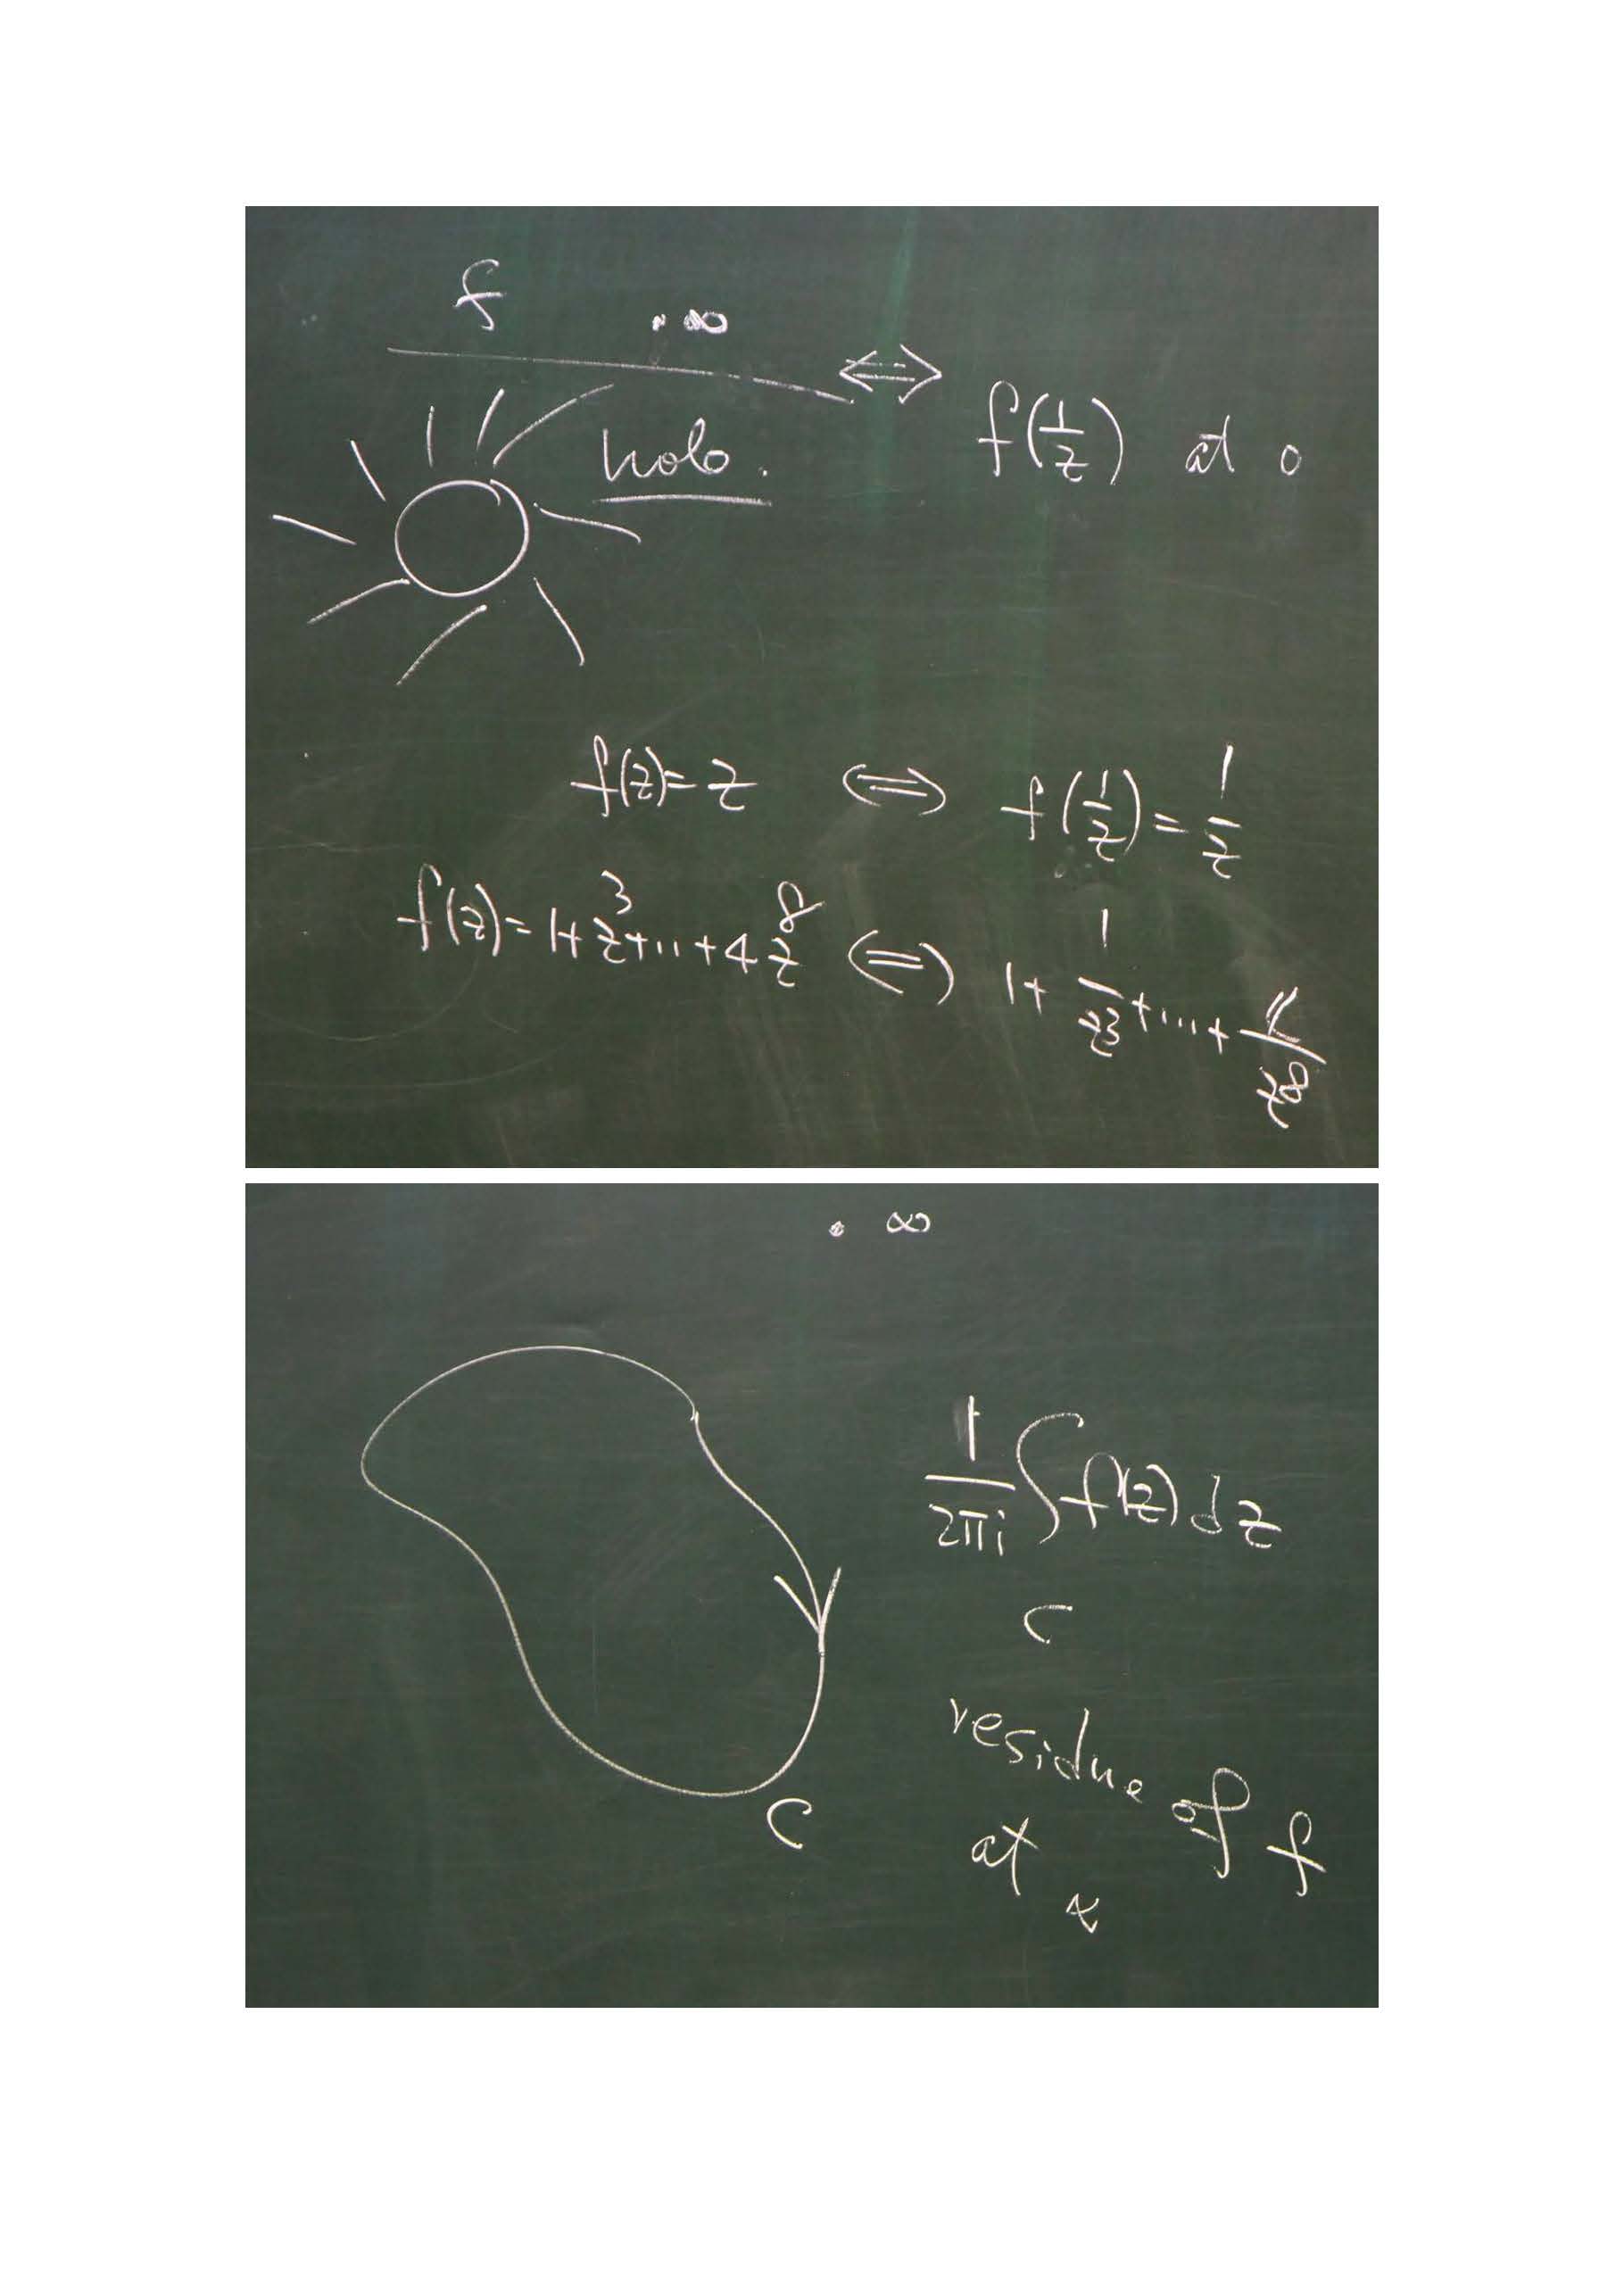 f . ∞ ⟺ f(1/z) at 0
holo.
f(z)= z ⟺ f(1/z)= 1/z
f(z)= 1+z³+...+4z⁸ ⟺ 1+ 1/z³+...+ 4/z⁸
. ∞
1/2πi ∫ f(z)dz
C
residue of f
at ∝
C